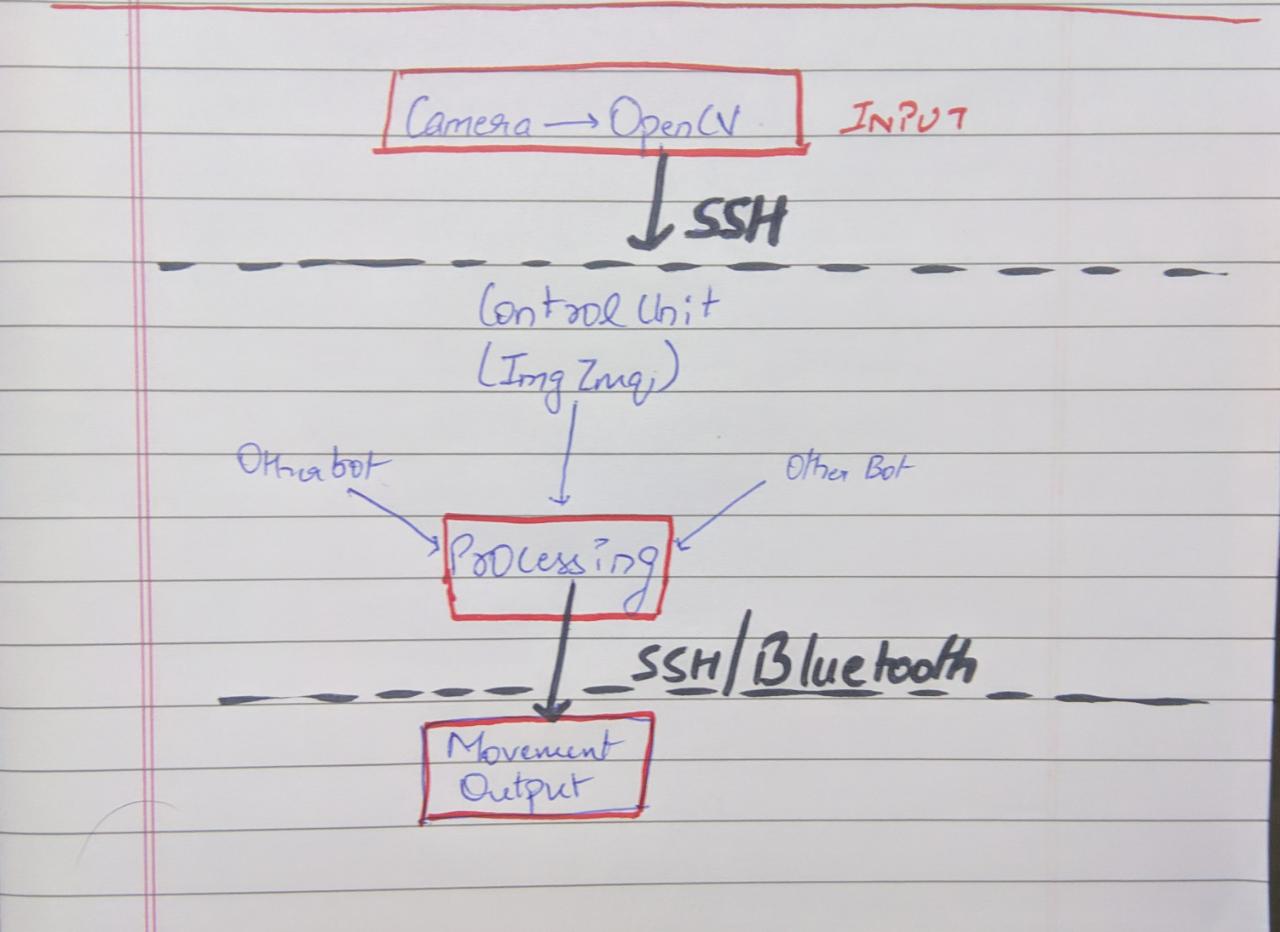 Camera → OpenCV
INPUT
SSH
Control Unit
(Img Zmq)
Other bot
Other Bot
Processing
SSH/Bluetooth
Movement
Output